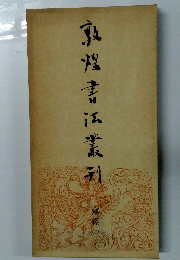 敦煌書法叢刊